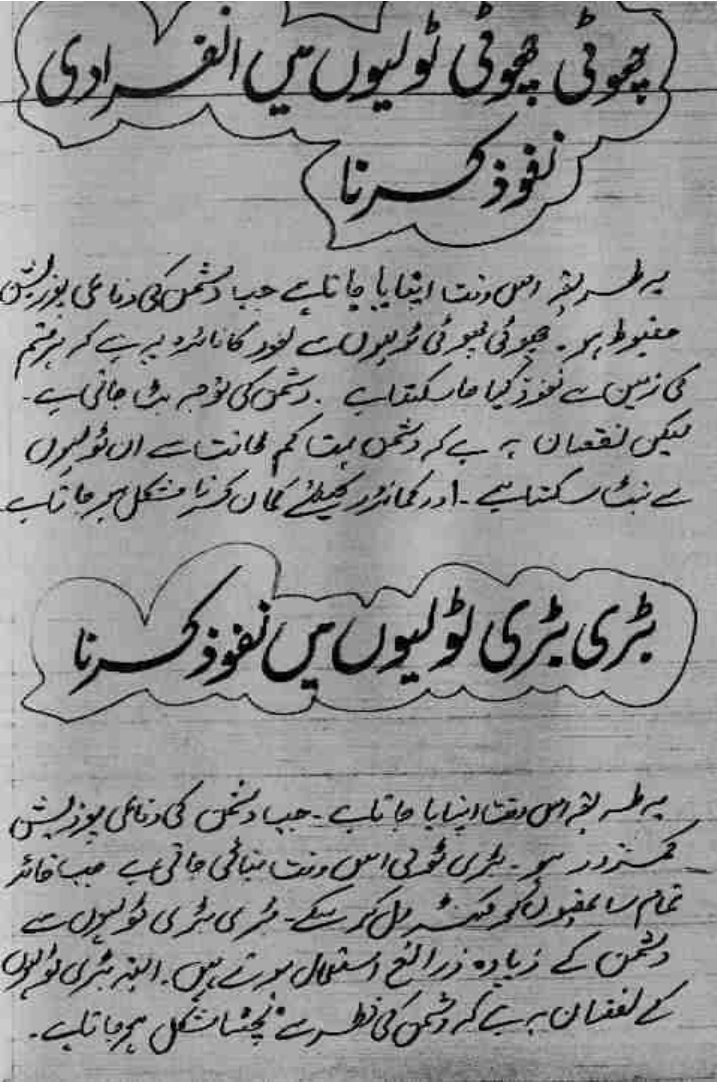 چھوٹی چھوٹی ٹولیوں میں انفرادی
نفوذ کرنا
یہ طریقہ اس وقت اپنایا جاتا ہے جب دشمن کی دفاعی پوزیشن
مضبوط ہو۔ چھوٹی چھوٹی ٹولیوں سے نفوذ کا فائدہ یہ ہے کہ ہر قسم
کی زمین سے نفوذ کیا جا سکتا ہے۔ دشمن کی توجہ بٹ جاتی ہے۔
لیکن نقصان یہ ہے کہ دشمن بہت کم طاقت سے ان ٹولیوں
سے نبٹ سکتا ہے۔ اور کمانڈر کیلئے کمان کرنا مشکل ہو جاتا ہے
بڑی بڑی ٹولیوں میں نفوذ کرنا
یہ طریقہ اس وقت اپنایا جاتا ہے۔ جب دشمن کی دفاعی پوزیشن
کمزور ہو۔ بڑی ٹولی اس وقت بنائی جاتی ہے جب قائد
تمام ساتھیوں کو کنٹرول کر سکے۔ بڑی بڑی ٹولیوں سے
دشمن کے زیادہ ذرائع استعمال ہوتے ہیں۔ البتہ بڑی ٹولیوں
کے نقصان یہ ہے کہ دشمن کی نظر سے بچنا مشکل ہو جاتا ہے۔